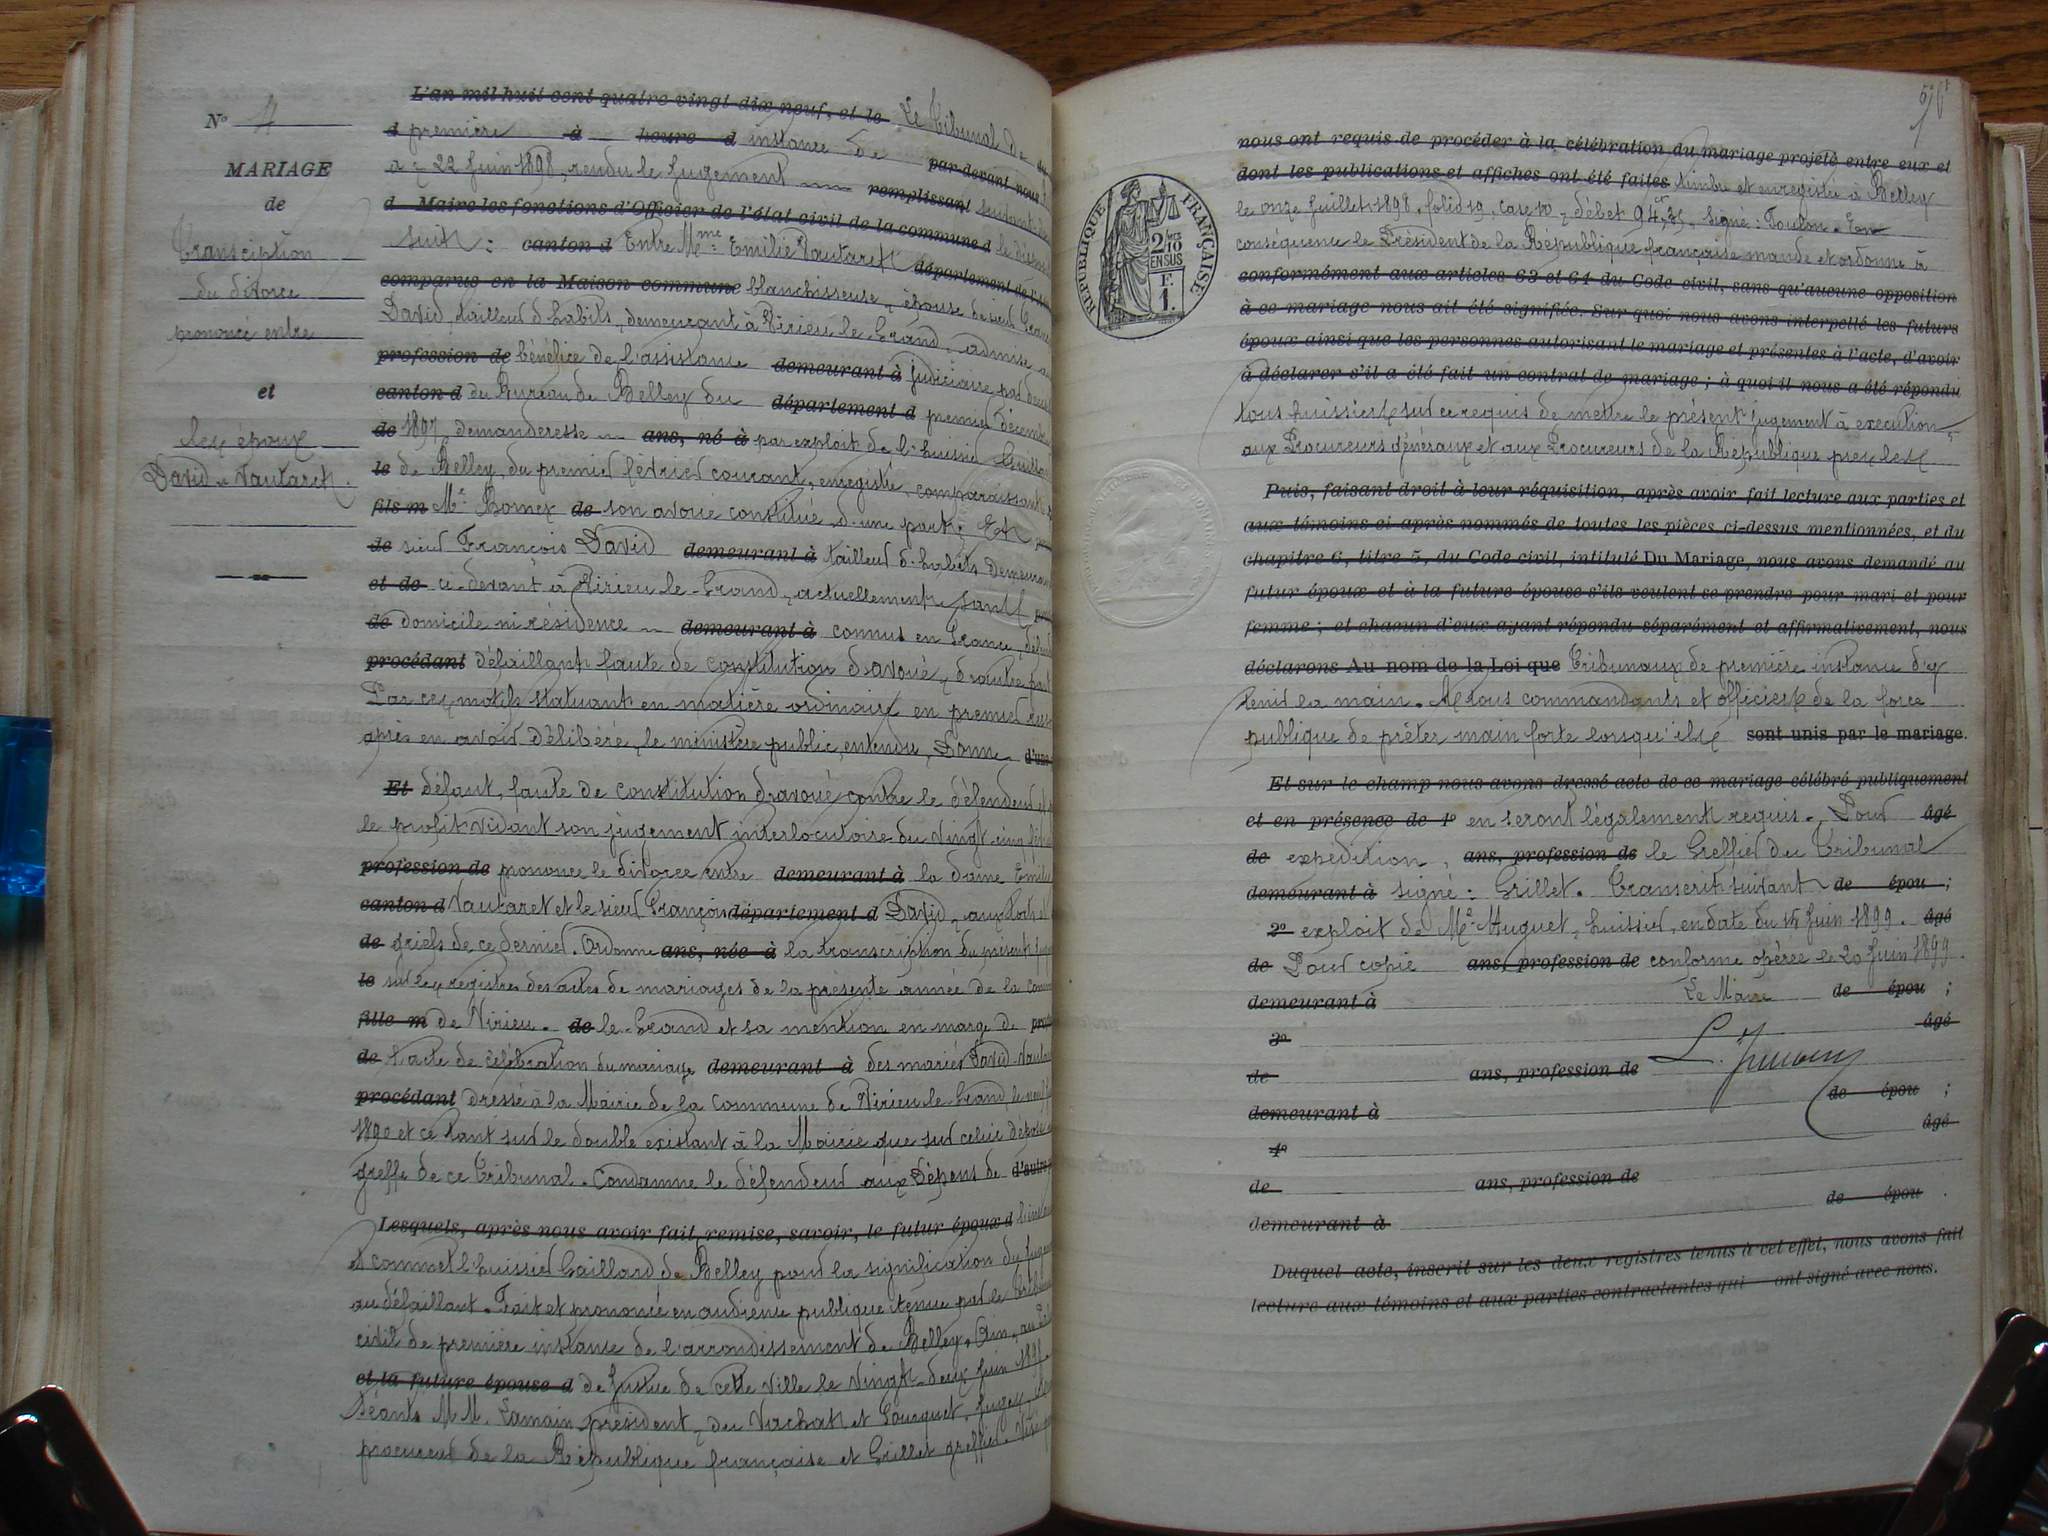 N° 4
MARIAGE
de
Transciption
du divorce
prononcé entre
et
les époux
David - Vautaret.
L'an mil huit cent quatre vingt dix neuf, et le Le Tribunal de
d première à heure d instance de par-devant nous
a le 22 Juin 1898, rendu le Jugement remplissant suit
d Maire les fonctions d'Officier de l'état civil de la commune d
suit : canton d Entre Mme Emilie Vautaret département de l'Ain
comparus en la Maison commune blanchisseuse, épouse de sieur
David, tailleur d'habits, demeurant à Virieu le Grand, admise au
profession de bénéfice de l'assistance demeurant à judiciaire par
canton d du Bureau de Belley du département d premier décembre
de 1897, demanderesse ans, né à par exploit de l'huissier
le de Belley, du premier février courant, enregistré, comparaissant
fils m Me Bornex de son avoué constitué, d'une part ; Et
de sieur François David demeurant à tailleur d'habits demeurant
et de ci-devant à Virieu le-Grand, actuellement sans
de domicile ni résidence demeurant à connus en France,
procédant défaillant faute de constitution d'avoué, d'autre part
Par ces motifs statuant en matière ordinaire en premier
après en avoir délibéré, le ministère public, entendu, Donne d'une
Et défaut, faute de constitution d'avoué contre le défendeur et
le profit vidant son jugement interlocutoire du vingt cinq
profession de prononce le divorce entre demeurant à la dame Emilie
canton d Vautaret et le sieur François département d David, aux torts et
de griefs de ce dernier. Ordonne ans, née à la transcription du présent
le sur les registres des actes de mariages de la présente année de la
fille m de Virieu. de le-Grand et sa mention en marge de
de l'acte de célébration du mariage demeurant à des mariés David-
procédant dressé à la Mairie de la commune de Virieu-le-Grand, le
1890 et ce tant sur le double existant à la Mairie que sur celui déposé
greffe de ce Tribunal. Condamne le défendeur aux Dépens de d'autre
Lesquels, après nous avoir fait remise, savoir, le futur époux d
et commet l'huissier Gaillard de Belley pour la signification du
au défaillant. Fait et prononcé en audience publique tenue par le
civil de première instance de l'arrondissement de Belley, Ain, au
et la future épouse d de Justice de cette ville le vingt-deux Juin
Séants MM. Lamain président, du Vachat et Jourquet, Juges,
procureur de la République française et Grillet greffier.
nous ont requis de procéder à la célébration du mariage projeté entre eux et
dont les publications et affiches ont été faites timbré et enregistré à Belley
le onze Juillet 1898, folio 19, case 10, débet signé : Toulon. En
conséquence le Président de la République française mande et ordonne à
conformément aux articles 63 et 64 du Code civil, sans qu'aucune opposition
à ce mariage nous ait été signifiée. Sur quoi nous avons interpellé les futurs
époux ainsi que les personnes autorisant le mariage et présentes à l'acte, d'avoir
à déclarer s'il a été fait un contrat de mariage ; à quoi il nous a été répondu
tous huissiers sur ce requis de mettre le présent jugement à exécution
aux Procureurs généraux et aux Procureurs de la République près les
Puis, faisant droit à leur réquisition, après avoir fait lecture aux parties et
aux témoins ci après nommés de toutes les pièces ci-dessus mentionnées, et du
chapitre 6, titre 5, du Code civil, intitulé Du Mariage, nous avons demandé au
futur époux et à la future épouse s'ils veulent se prendre pour mari et pour
femme ; et chacun d'eux ayant répondu séparément et affirmativement, nous
déclarons Au nom de la Loi que Tribunaux de première instance d'y
tenir la main. A tous commandants et officiers de la force
publique de prêter main forte lorsqu'ils sont unis par le mariage.
Et sur le champ nous avons dressé acte de ce mariage célébré publiquement
et en présence de 1° en seront légalement requis. Pour âgé
de expédition, ans, profession de le Greffier du Tribunal
demeurant à signé : Grillet. Transcrit suivant de épou ;
2° exploit de Me Auguet, huissier, en date du 15 Juin 1899. âgé
de Pour copie ans, profession de conforme opérée le 20 Juin 1899.
demeurant à Le Maire de épou ;
3° âgé
de ans, profession de
demeurant à de épou ;
4° âgé
de ans, profession de
demeurant à de épou .
Duquel acte, inscrit sur les deux registres tenus à cet effet, nous avons fait
lecture aux témoins et aux parties contractantes qui ont signé avec nous.
RÉPUBLIQUE FRANÇAISE
2/10 EN SUS
F. 1.